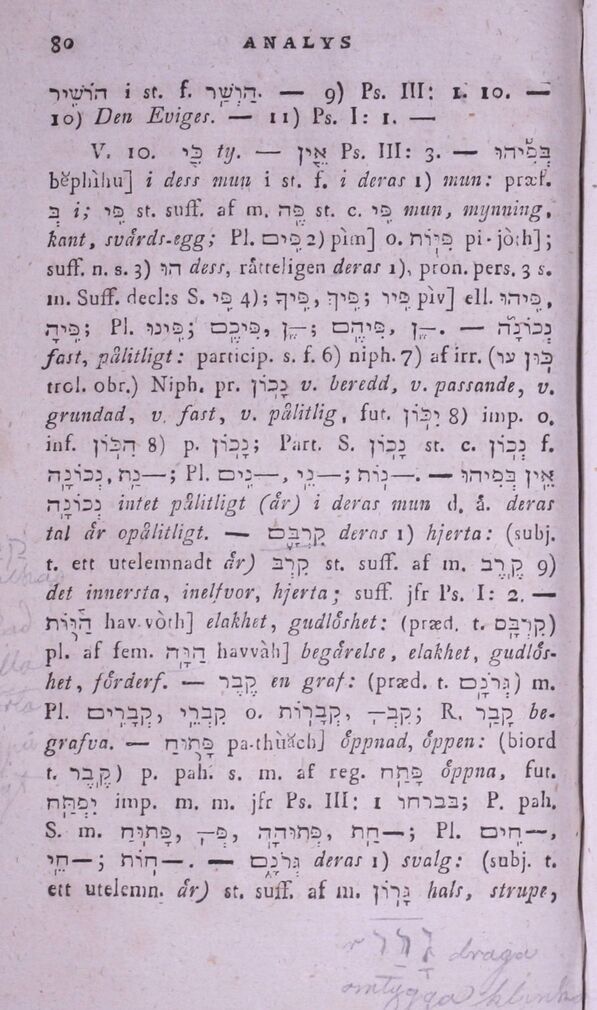 80 ANALYS
הוֹשִׁיר i st. f. הַוְשַׁר. — 9) Ps. III: 1. 10. —
10) Den Eviges. — 11) Ps. I: 1. —
V. 10. כִּי ty. — אֵין Ps. III: 3. — בְּפִיהוּ
bĕphìhu] i dess mun i st. f. i deras 1) mun: præf.
בְּ i; פִּי st. suff. af m. פֶּה st. c. פִּי mun, mynning,
kant, svärds-egg; Pl. פִּים 2) pìm] o. פִּיּוֹת pi-jòth];
suff. n. s. 3) הוּ dess, rätteligen deras 1), pron. pers. 3 s.
m. Suff. decl:s S. פִּי 4); פִּיךָ, פִּיךְ; פִּיו pìv] ell. פִּיהוּ,
פִּיהָ; Pl. פִּינוּ; פִּיכֶם, ־ֶן; פִּיהֶם, ־ֶן. — נְכוֹנָה
fast, pålitligt: particip. s. f. 6) niph. 7) af irr. (עו כּוּן
trol. obr.) Niph. pr. נָכוֹן v. beredd, v. passande, v.
grundad, v. fast, v. pålitlig, fut. יִכּוֹן 8) imp. o.
inf. הִכּוֹן 8) p. נָכוֹן; Part. S. נָכוֹן st. c. נְכוֹן f.
נְכוֹנָה, —נַת; Pl. —נִים, —נֵי; —נוֹת. — אֵין בְּפִיהוּ
נְכוֹנָה intet pålitligt (är) i deras mun d. ä. deras
tal är opålitligt. — קִרְבָּם deras 1) hjerta: (subj.
t. ett utelemnadt är) קִרְב st. suff. af m. קֶרֶב 9)
det innersta, inelfvor, hjerta; suff. jfr Ps. I: 2. —
הַוּוֹת hav-vòth] elakhet, gudlöshet: (præd. t. קִרְבָּם)
pl. af fem. הַוָּה havvàh] begärelse, elakhet, gudlös-
het, förderf. — קֶבֶר en graf: (præd. t. גְּרֹנָם) m.
Pl. קְבָרִים, קִבְרֵי o. קְבָרוֹת, קִבְ—; R. קָבַר be-
grafva. — פָּתוּחַ pa-thùăch] öppnad, öppen: (biord
t. קֶבֶר) p. pah. s. m. af reg. פָּתַח öppna, fut.
יִפְתַּח imp. m. m. jfr Ps. III: 1 בברחו; P. pah.
S. m. פָּתוּחַ, פְּ—, פְּתוּחָה, —חַת; Pl. —חִים,
—חֵי; —חוֹת. — גְּרֹנָם deras 1) svalg: (subj. t.
ett utelemn. är) st. suff. af m. גָּרוֹן hals, strupe,
גָרַר draga